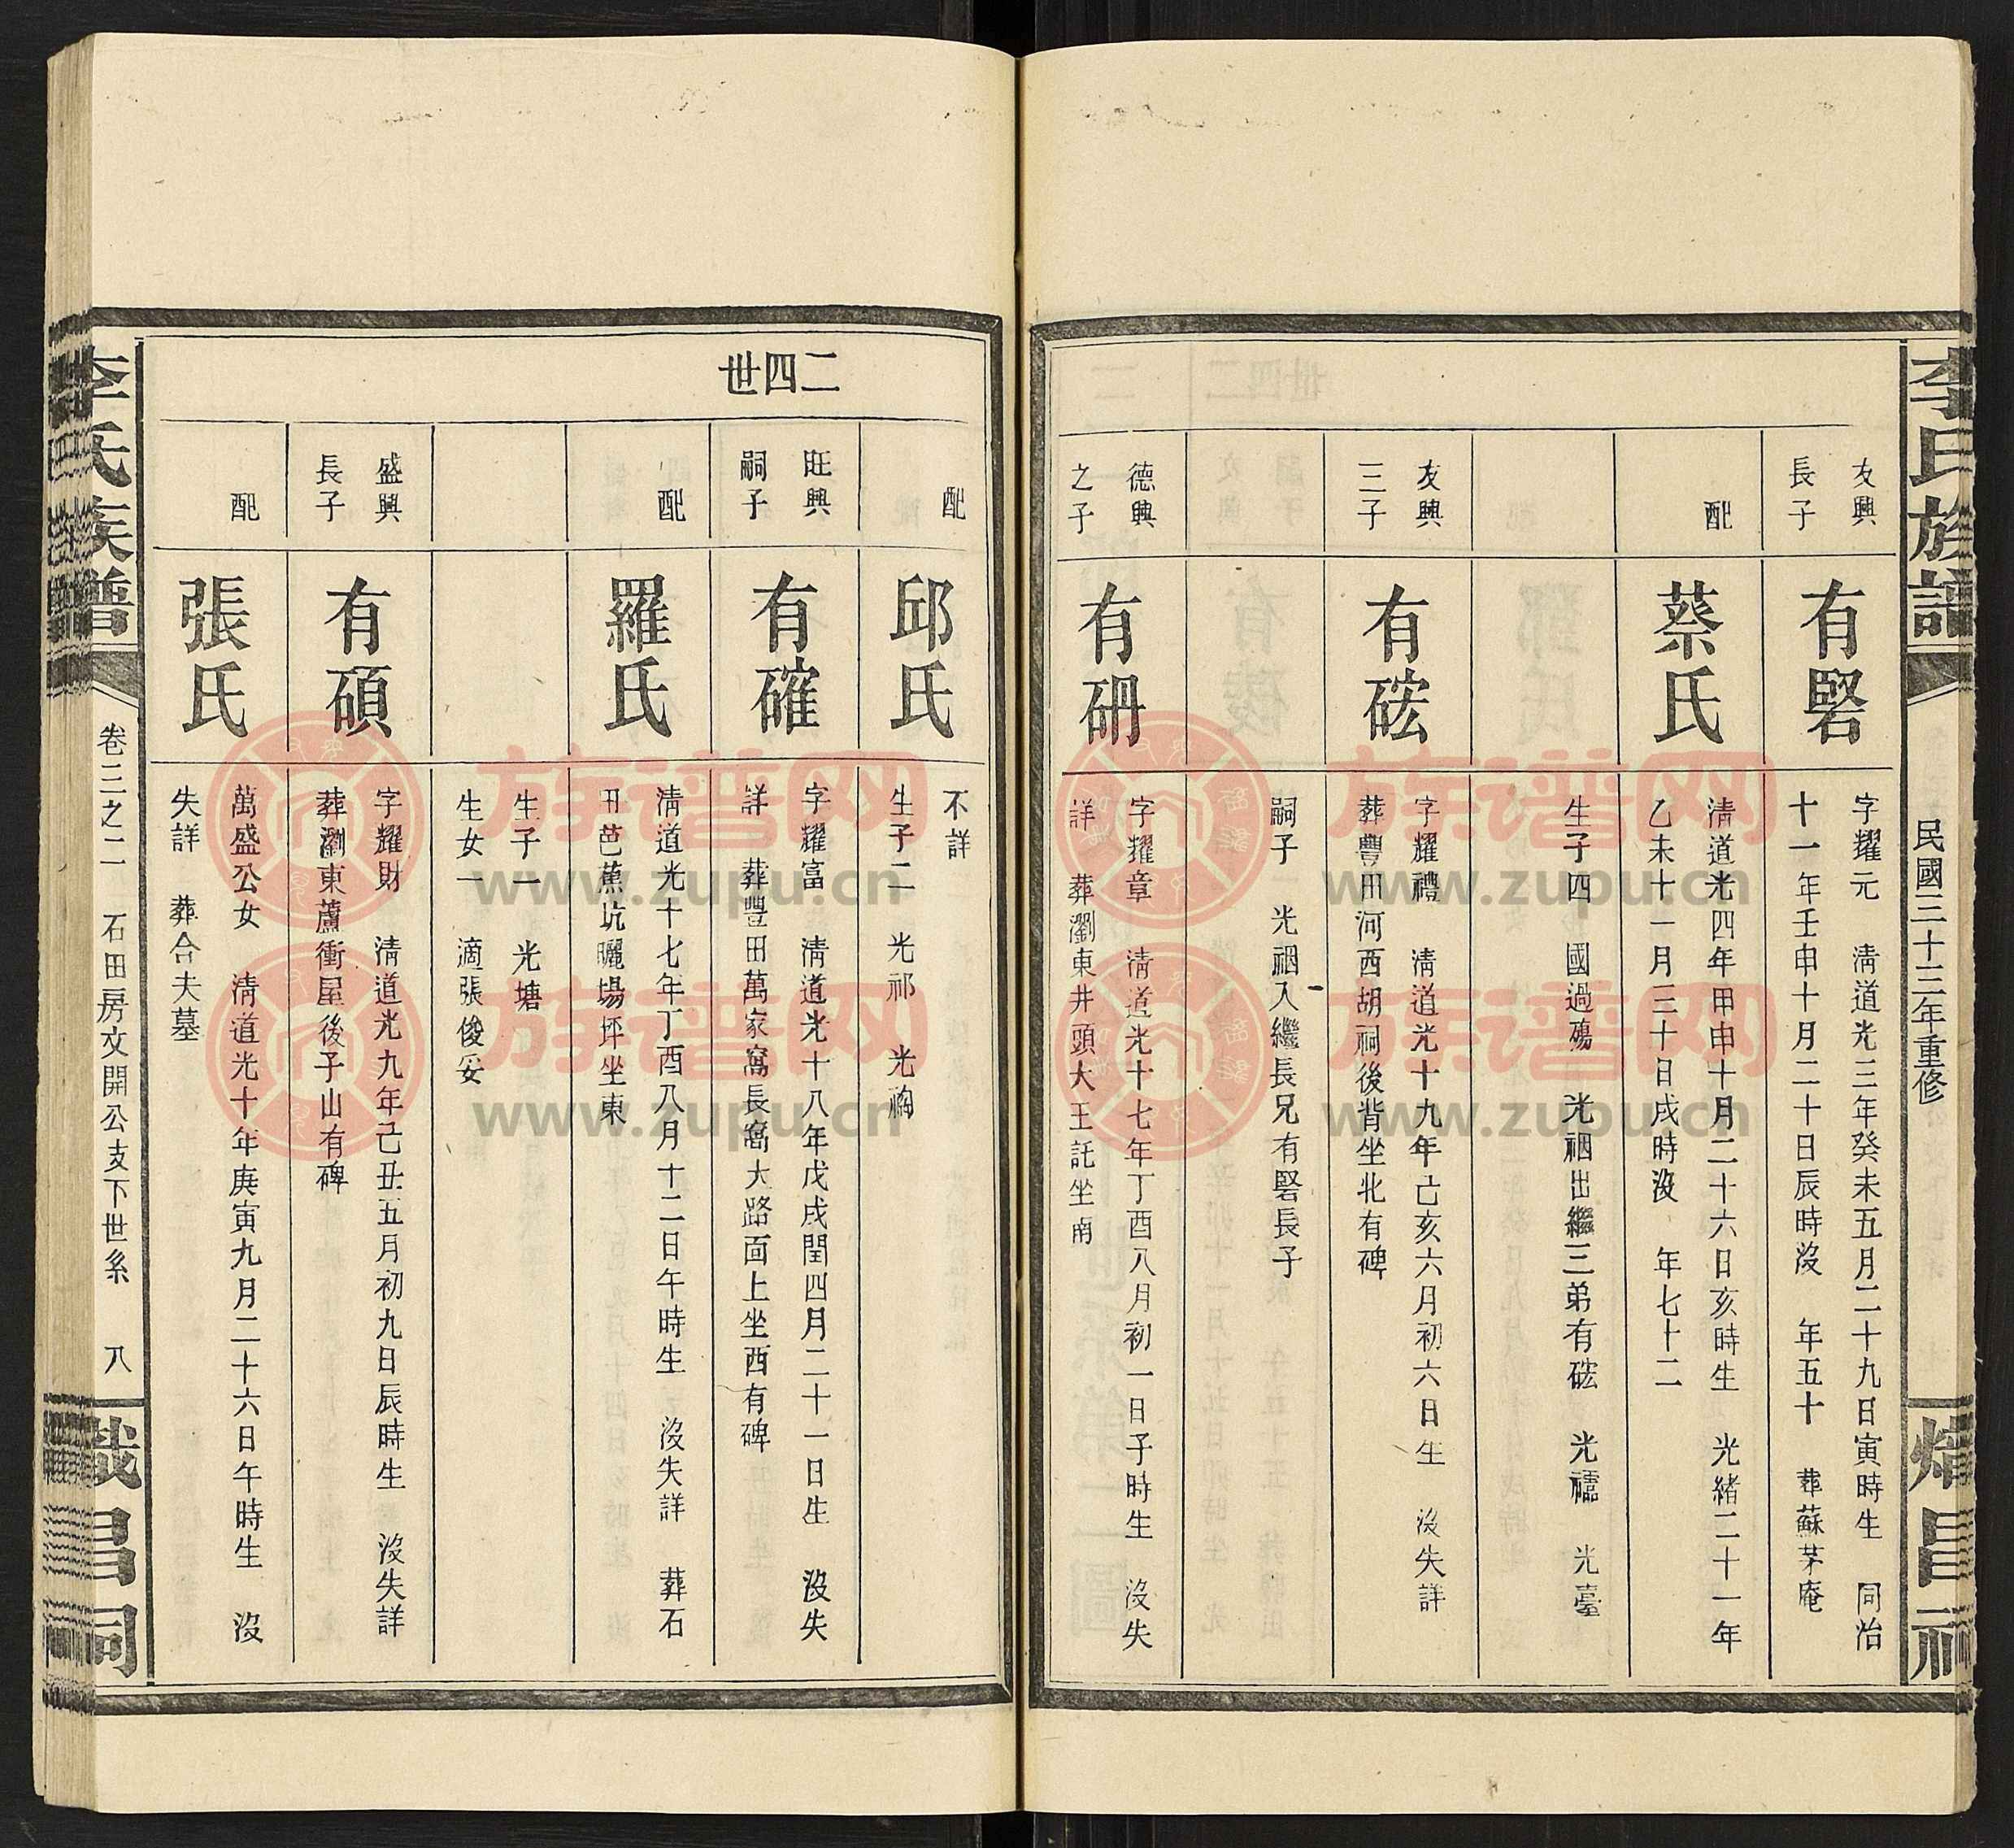 李氏族譜
民國三十三年重修
熾昌祠
友興
長子
有硻
字耀元 清道光三年癸未五月二十九日寅時生 同治
十一年壬申十月二十日辰時沒 年五十 葬蘇茅庵
配
蔡氏
清道光四年甲申十月二十六日亥時生 光緒二十一年
乙未十一月三十日戌時沒 年七十二
生子四 國過殤 光祵出繼三弟有硡 光𥜥 光臺
友興
三子
有硡
字耀禮 清道光十九年己亥六月初六日生 沒失詳
葬豐田河西胡祠後背坐北有碑
嗣子一 光祵入繼長兄有硻長子
德興
之子
有硏
字耀章 清道光十七年丁酉八月初一日子時生 沒失
詳 葬瀏東井頭大王託坐南
二四世
配
邱氏
不詳
生子二 光祁 光祹
旺興
嗣子
有確
字耀富 清道光十八年戊戌閏四月二十一日生 沒失
詳 葬豐田萬家窩長窩大路面上坐西有碑
配
羅氏
清道光十七年丁酉八月十二日午時生 沒失詳 葬石
田芭蕉坑曬場坪坐東
生子一 光塘
生女一 適張俊妥
盛興
長子
有碩
字耀財 清道光九年己丑五月初九日辰時生 沒失詳
葬瀏東蘆衝屋後子山有碑
配
張氏
萬盛公女 清道光十年庚寅九月二十六日午時生 沒
失詳 葬合夫墓
李氏族譜
卷三之二 石田房文開公支下世系 八
熾昌祠
族谱网
www.zupu.cn
族谱网
www.zupu.cn
族谱网
www.zupu.cn
族谱网
www.zupu.cn